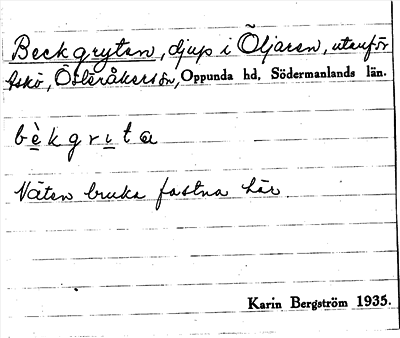 Beckgrytan, djup i Öljaren, utanför
Äskö, Österåkers sn, Oppunda hd, Södermanlands län.
bè̱kgrı̱ta
Näten bruka fastna här
Karin Bergström 1935.